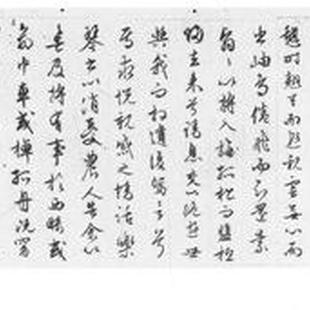 憩時矯首而遐觀雲無心而
出岫鳥倦飛而知還景翳
翳以將入撫孤松而盤桓
歸去來兮請息交以絕遊世
與我而相遺復駕言兮
焉求悅親戚之情話樂
琴書以消憂農人告余以
春及將有事於西疇或
命巾車或棹孤舟既窈